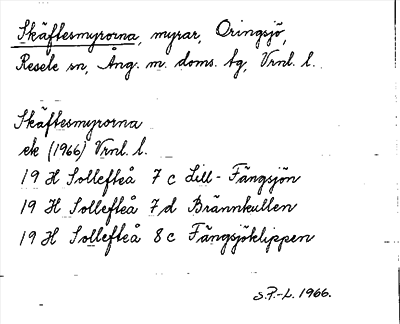 Skäftesmyrorna, myrar, Oringsjö,
Resele sn, Ång. m. doms. tg, Vrnl. l.
Skäftesmyrorna
ek (1966) Vrnl. l.
19 H Sollefteå 7 c Lill-Fängsjön
19 H Sollefteå 7 d Brännkullen
19 H Sollefteå 8 c Fängsjöklippen
S.P.-L. 1966.